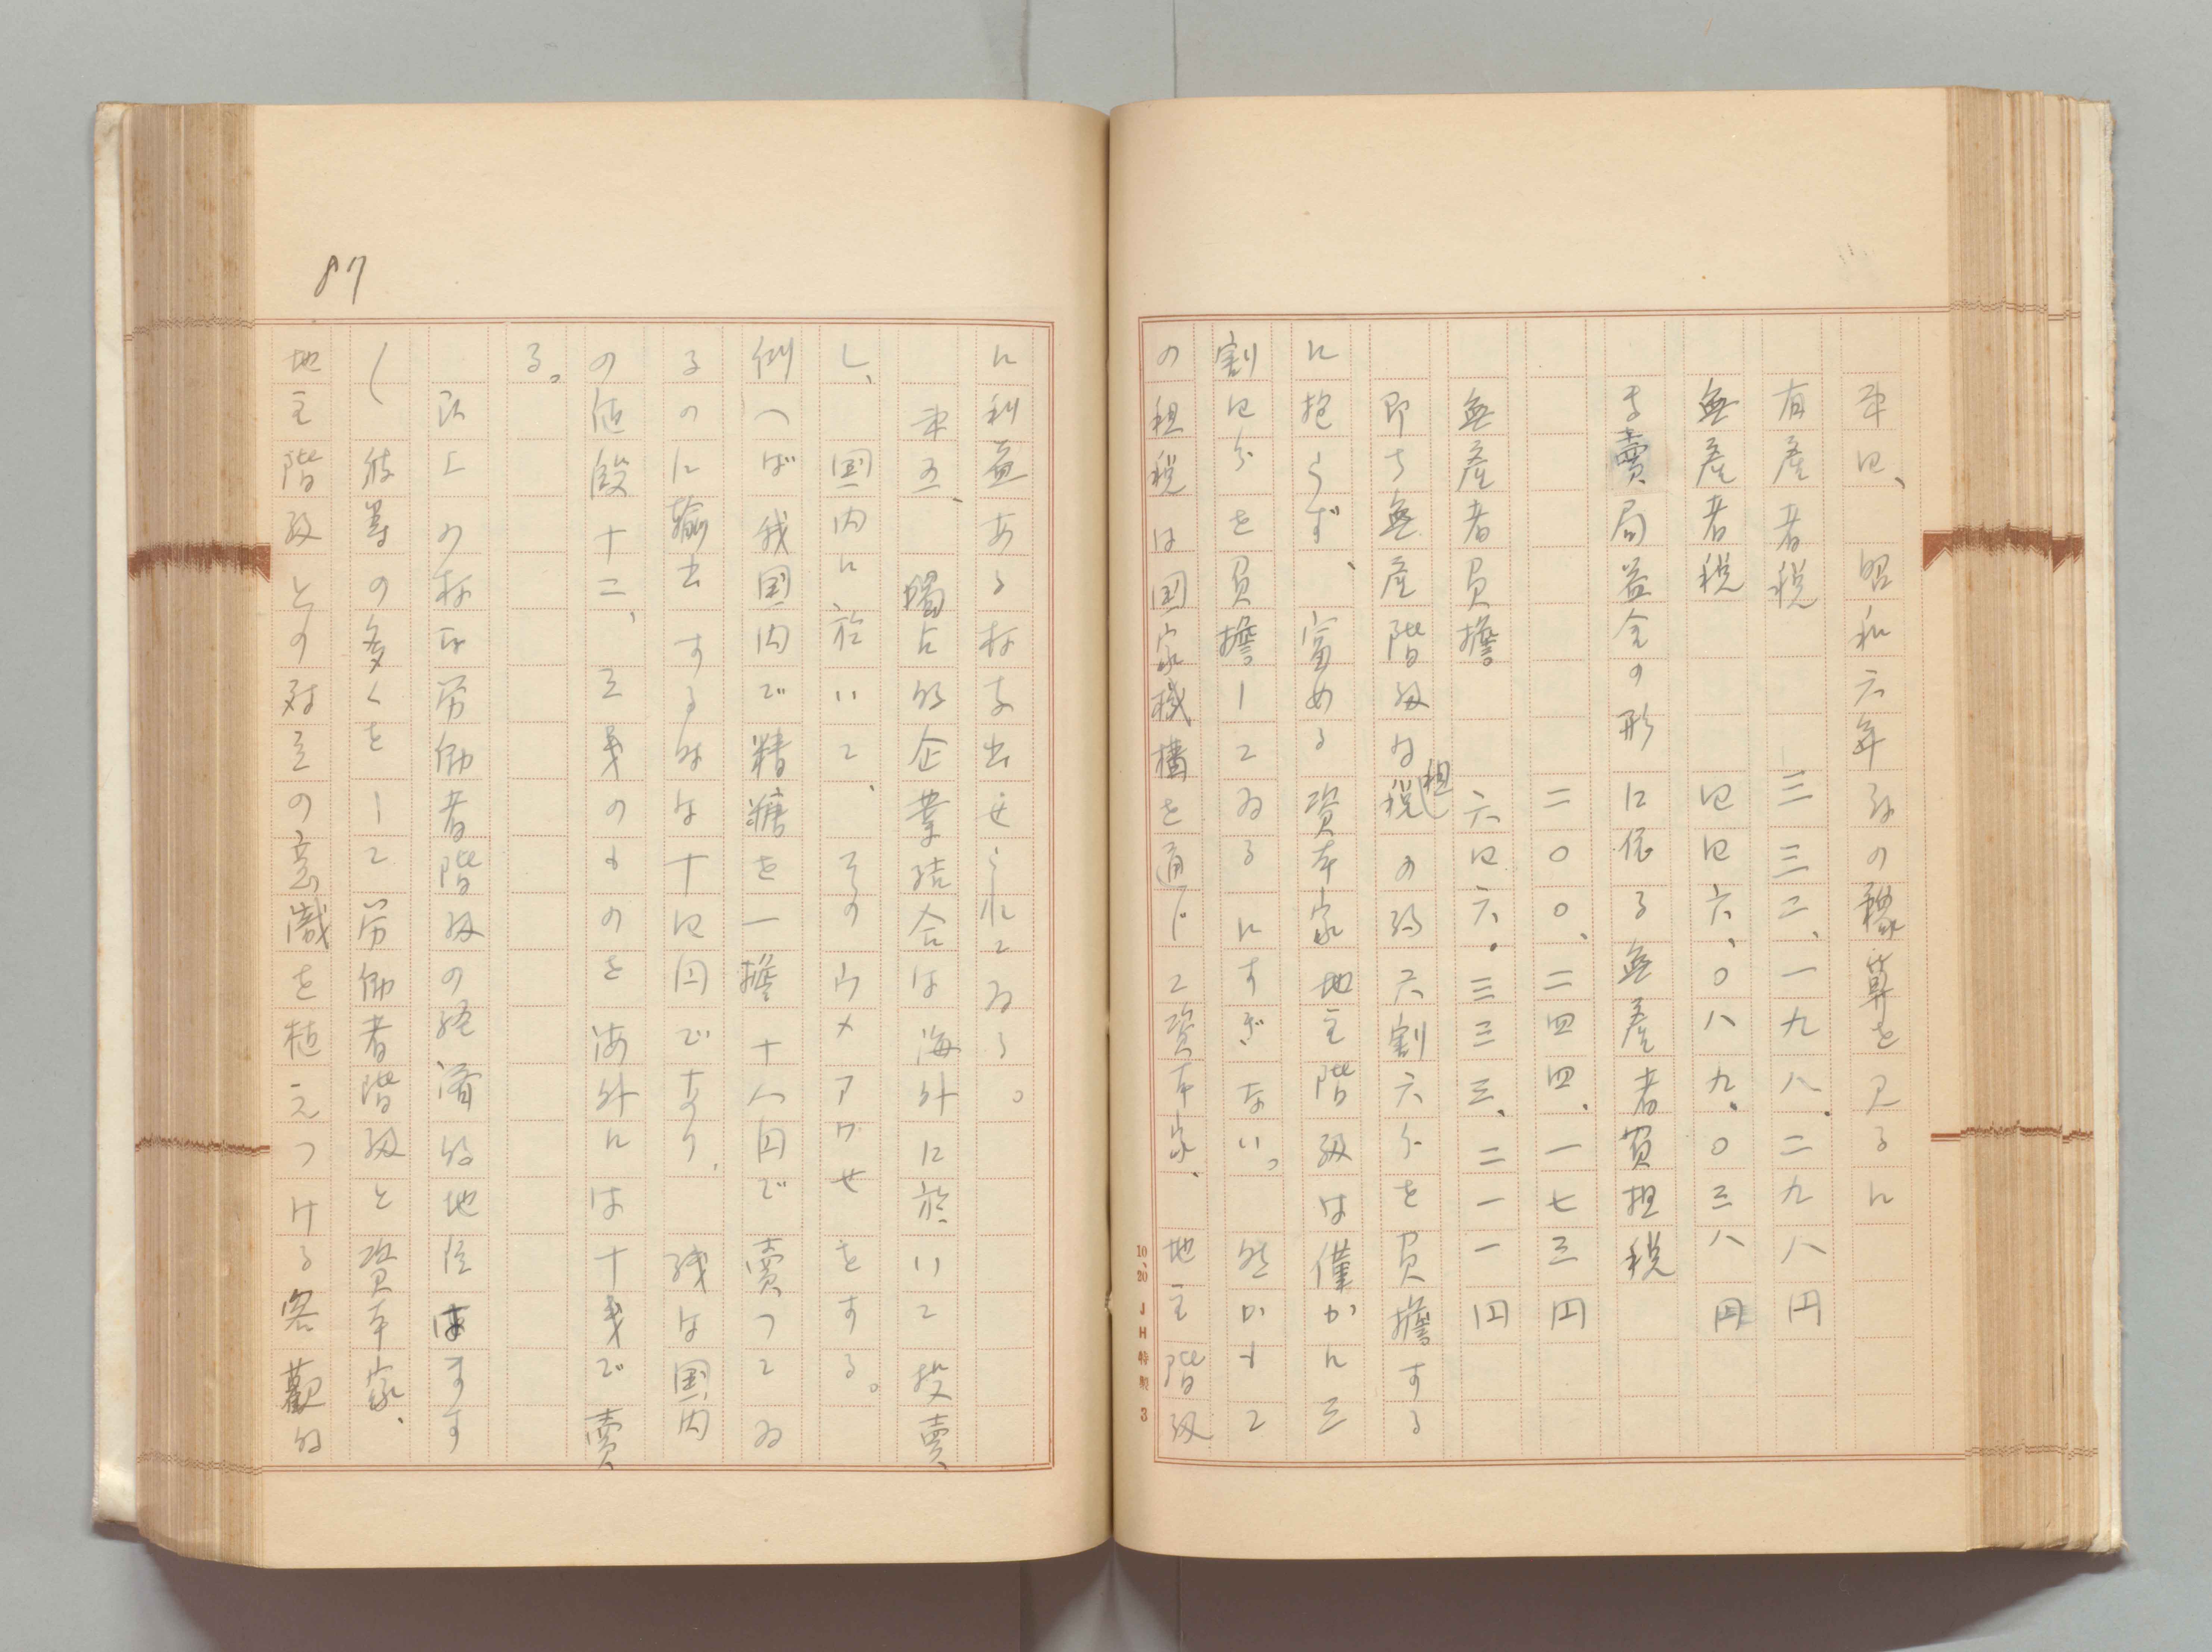 第四、昭和六年度の予算を見るに
有産者税　三三二、一九八、二九八円
無産者税　四四六、〇八九、〇三八円
専売局益金の形に依る無産者負担税
二〇〇、二四四、一七三円
無産者負擔　六四六、三三三、二一一円
即ち無産階級は租税の約六割六分を負擔する
に拘らず、富める資本家地主階級は僅かに三
割四分を負擔してゐるにすぎない。然かもこ
の租税は国家機構を通じて資本家、地主階級
87
に利益ある様支出せられてゐる。
第五、獨占的企業結合は海外に於いて投賣
し、国内に於いて、そのウメアワせをする。
例へば我国内で精糖を一擔十八円で賣つてゐ
るのに輸出するときは十四円であり、残は国内
の値段十二、三銭のものを海外には十銭で賣
る。
以上の様な労働者階級の経済的地位はますま
し彼等の多くをして労働者階級と資本家、
地主階級との対立の意識を植えつける客觀的
10.20 JH特製 3